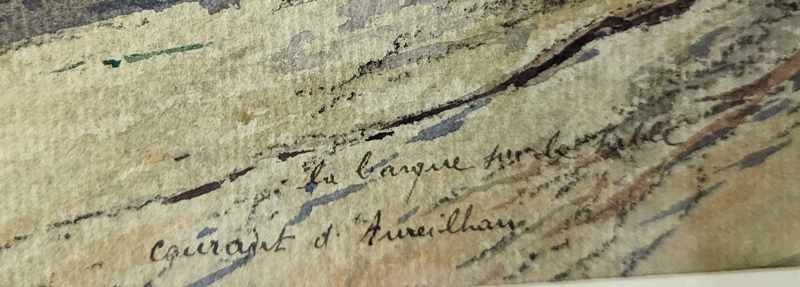 la barque sur le sable
courant d'Aureilhan